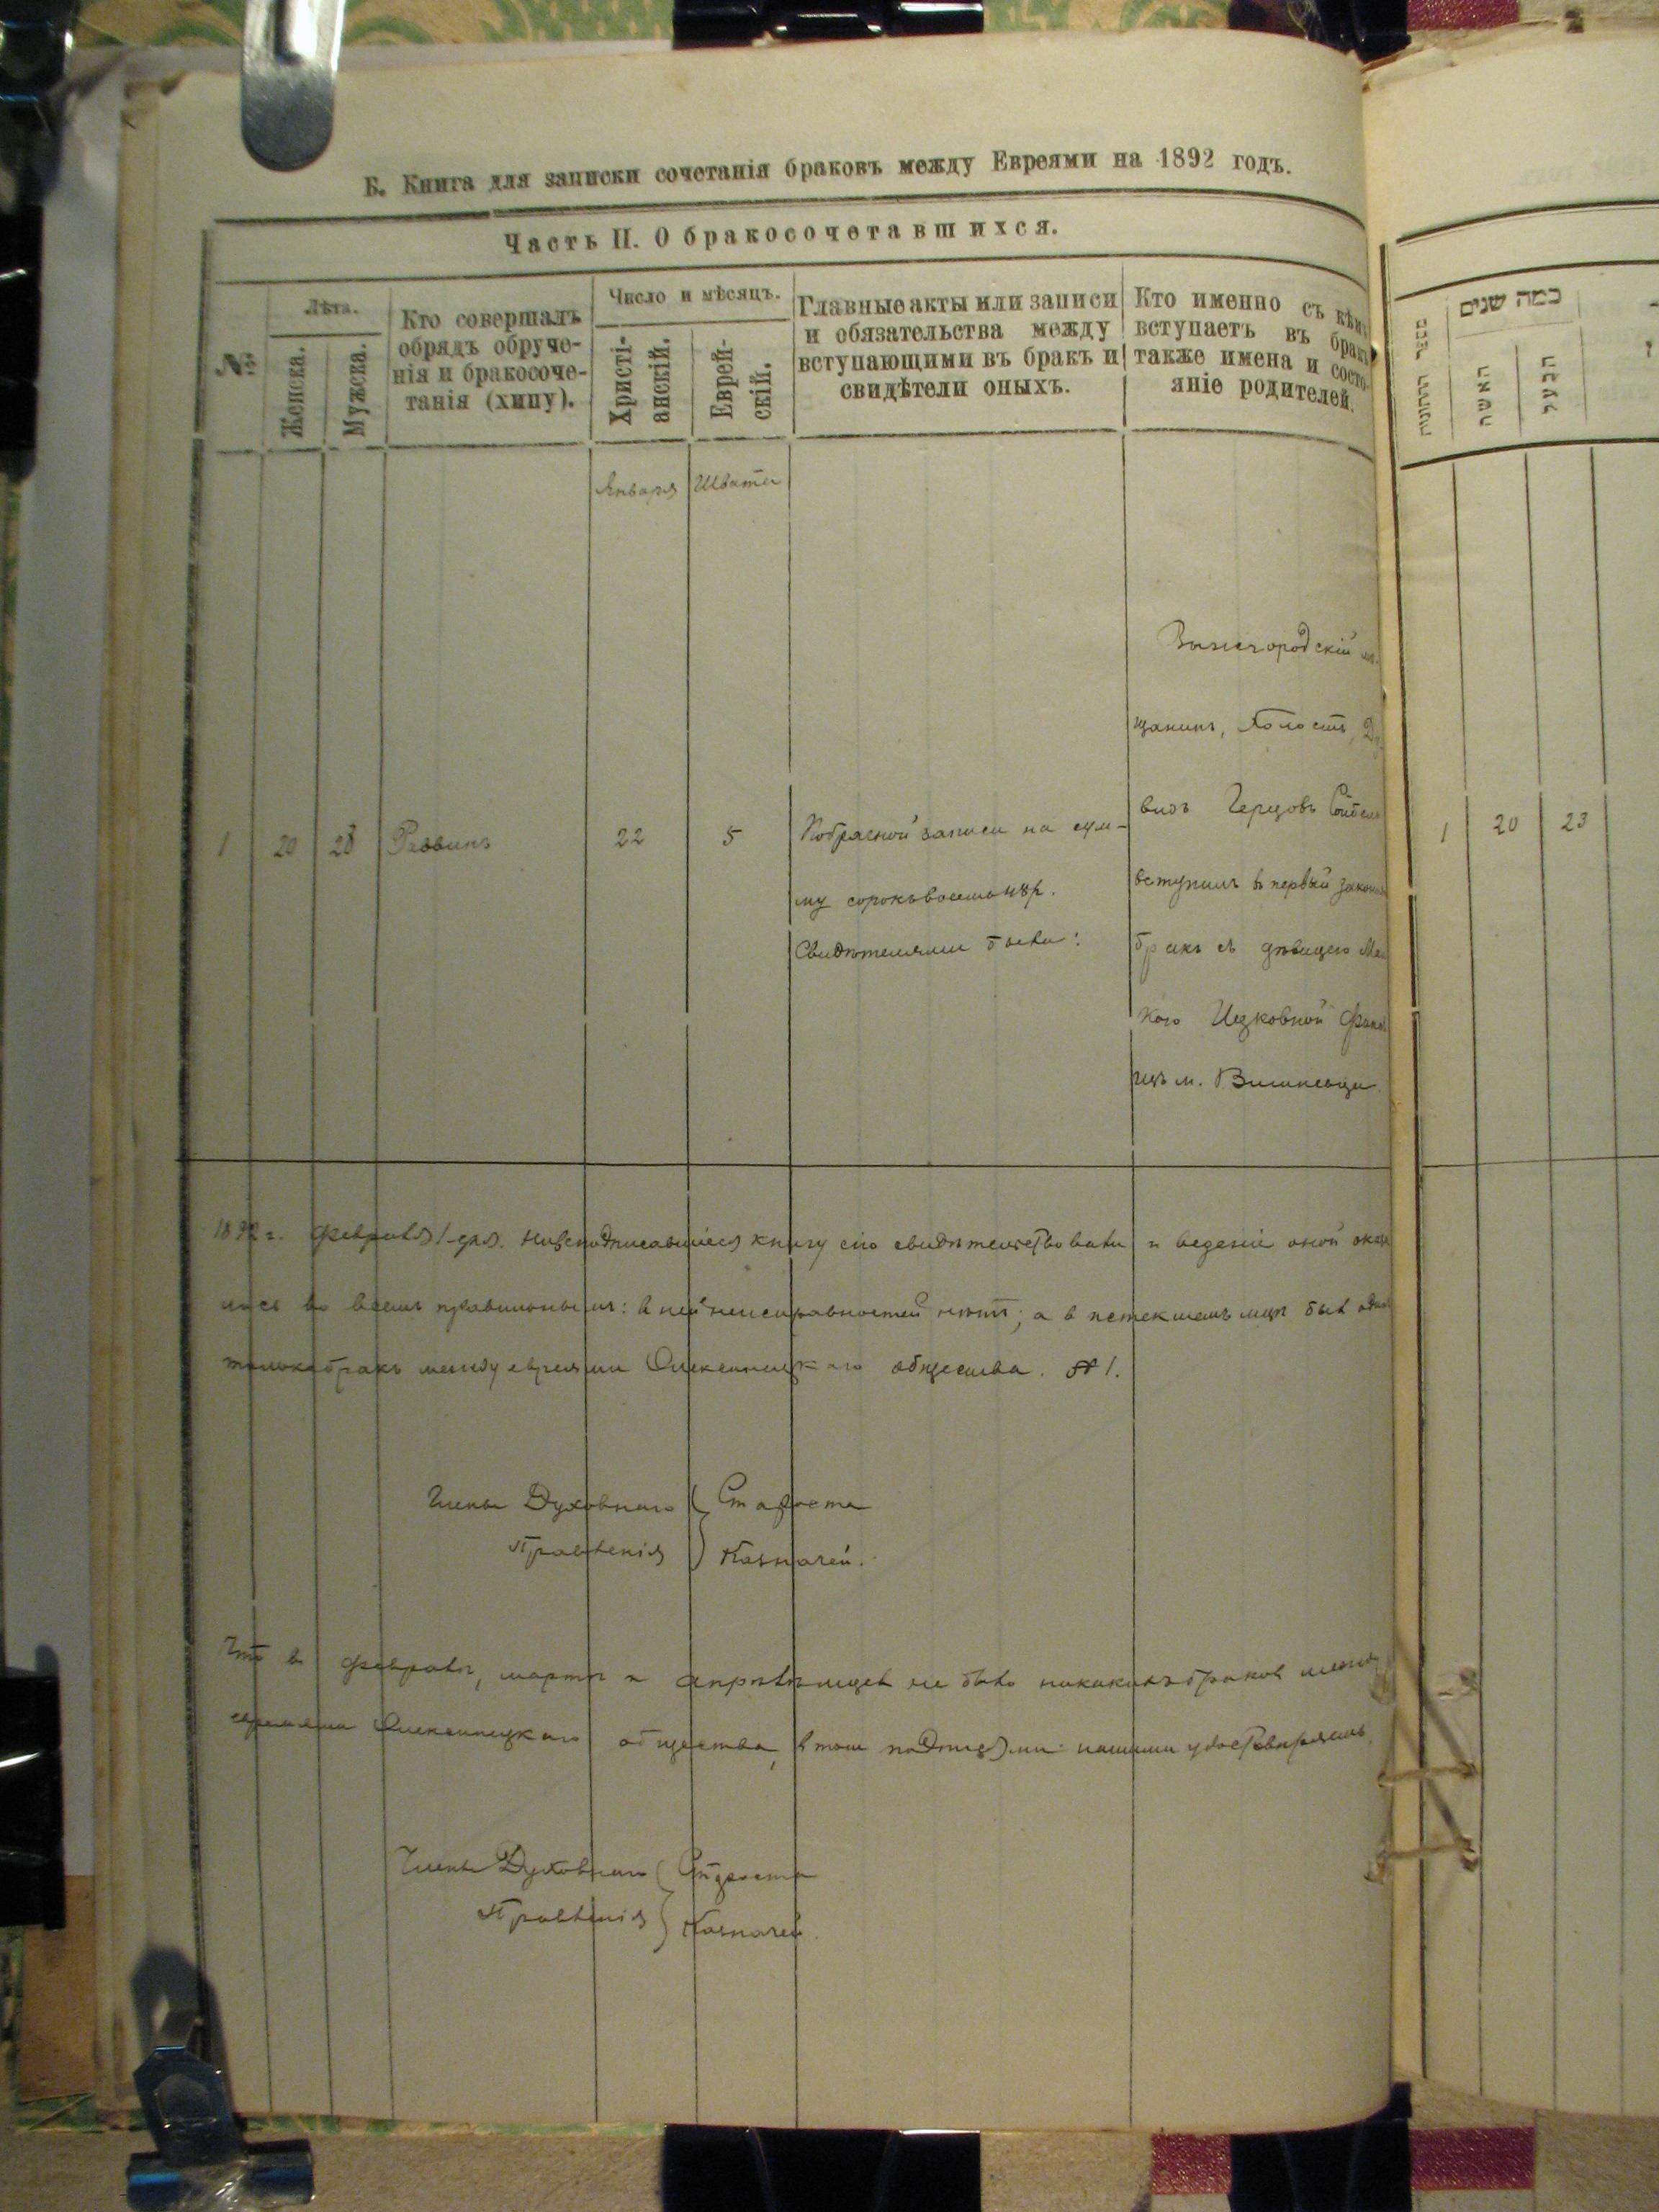 Б. Книга для записки сочетанія браковъ между Евреями на 1892 годъ.
Часть II. О бракосочетавшихся.
№
Лѣта.
Женска.
Мужска.
Кто совершалъ
обрядъ обруче-
нія и бракосоче-
танія (хипу).
Число и мѣсяцъ.
Христі-
анскій.
Еврей-
скій.
Главные акты или записи
и обязательства между
вступающими въ бракъ и
свидѣтели оныхъ.
Кто именно съ кѣмъ
вступаетъ въ бракъ
также имена и состо-
яніе родителей.
Января Швата
1 20 23 Раввинъ 22 5
записи на сум-
му сорокъ восемь 48 р.
Свидѣтелями были:
щанинъ, холостъ, Да
видъ Герцовъ
вступилъ в первый законн
бракъ съ дѣвицею
кою Ицковной
м. Вишневца.
1892 г. Февраля 1 дня. Нижеподписавшіеся книгу сію свидѣтельствовали и веденіе оной оказа
лось во всемъ правильнымъ: в ней неисправностей нѣтъ; а в истекшемъ мцѣ был один
только бракъ между евреями Олексинецкаго общества. № 1.
Члены Духовнаго Староста
Правленія Казначей.
Что в Февралѣ, мартѣ и апрѣлѣ мцев не было никакихъ браков между
евреями Олексинецкаго общества, в том подписями нашими удостовѣряемъ.
Члены Духовнаго Староста
Правленія Казначей.
כמה שנים
האשה
הבעל
1 20 23